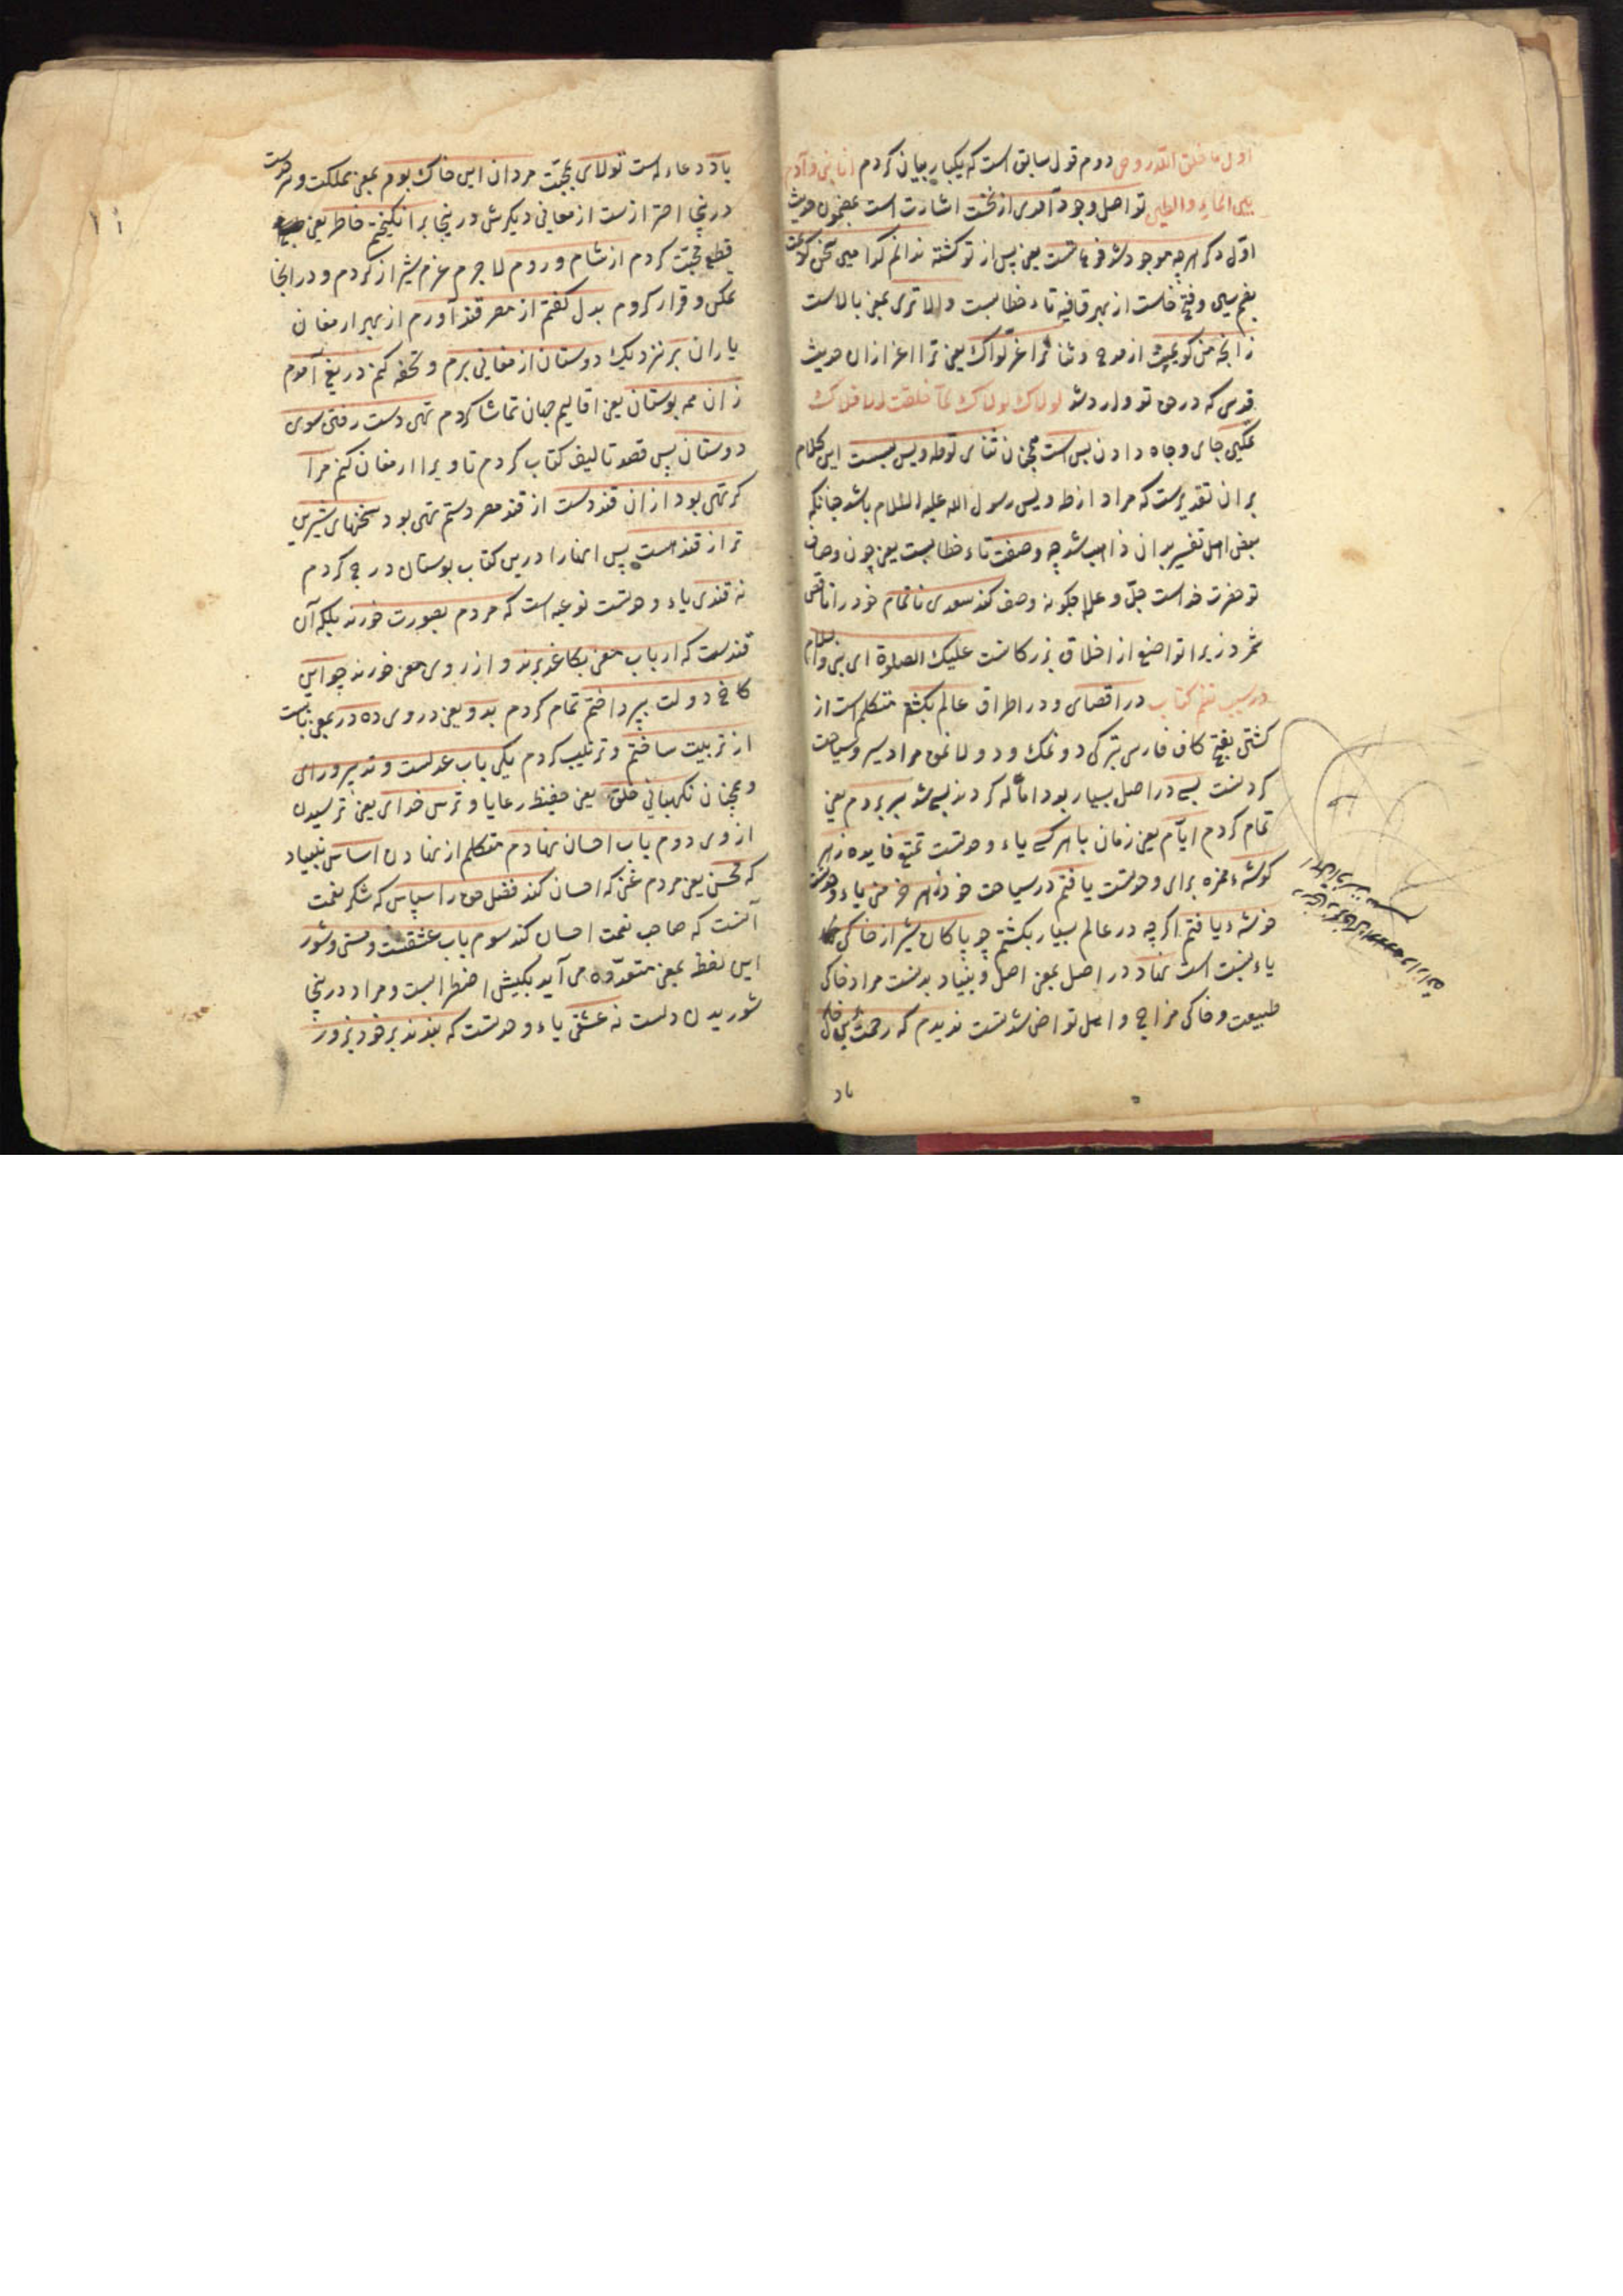 اول ما خلق الله روحی دوم قول سابق است که یکبار بیان کردم انا نبی و آدم
بین الماء والطین تو اصل وجود آمدی از نخست اشارت است بمضمون حدیث
اول دگر هرچه موجود شد فرع تست یعنی پس از تو گشته ندانم کدامین سخن گویمت
بضم سین و فتح خاست از بهر قافیه تاء خطابست والاتری بمعنی بالاست
زانچه من گویمت از مدح و ثنا ترا عز لولاک یعنی ترا اعزاز ان حدیث
قدسی که در حق تو وارد شد لولاک لولاک لما خلقت الافلاک
تمکین جای و جاه دادن بس است همچنان ثنای تو طه و یس بسست این کلام
بران تقدیرست که مراد از طه و یس رسول الله علیه السلام باشد چنانکه
بعض اهل تفسیر بران ذاهب شد چه وصفت تاء خطابست یعنی چون وصاف
تو حضرت خداست جل و علا چگونه وصف کند سعدی ناتمام خود را ناقص
شمرد زیرا تواضع از اخلاق بزرکانست علیک الصلوة ای نبی والسلام
در سبب نظم کتاب در اقصای و در اطراف عالم بگشتم متکلم است از
گشتن بفتح کاف فارسی بترکی دونمک و دولانمق مراد سیر و سیاحت
کردنست بسی در اصل بسیار بود اماله کردند بسی شد بسر بردم یعنی
تمام کردم ایام یعنی زمان با هر کسی یاء وحدتست تمتع فایده ز هر
گوشه‌ء همزه برای وحدتست یافتم در سیاحت خود ز هر خرمنی یاء وحدتست
خوشه‌ء یافتم اگرچه در عالم بسیار بگشتم چو پاکان شیراز خاکی
یاء نسبت است نهاد در اصل بمعنی اصل و بنیاد بدنست مراد خاکی
طبیعت و خاکی مزاج و اهل تواضع شدنست ندیدم که رحمت برین خاک
باد
باد دعاء است تولای محبت مردان این خاک بوم بمعنی مملکت و سرحدست
درینجا احترازست از معانی دیگرش درینجا برانگیختم خاطر یعنی
قطع محبت کردم از شام و روم لاجرم عزم شیراز کردم و در آنجا
تمکن و قرار کردم بدل گفتم از مصر قند آورم از بهر ارمغان
یاران بر نزدیک دوستان ارمغانی برم و تحفه کنم دریغ آمدم
زان همه بوستان یعنی اقالیم جهان تماشا کردم تهی دست رفتن سوی
دوستان پس قصد تالیف کتاب کردم تا ویرا ارمغان کنم مرا
گر تهی بود ازان قند دست از قند مصر دستم تهی بود سخنهای شیرین
تر از قند هست پس انهارا درین کتاب بوستان درج کردم
نه قندی یاء وحدتست نوعیه است که مردم بصورت خورند بلکه آن
قندست که ارباب معنی بکاغد برند و از روی معنی خورند چو این
کاخ دولت بپرداختم تمام کردم بدو یعنی در وی ده در بمعنی بابست
از تربیت ساختم و ترتیب کردم یکی باب عدلست و تدبیر و رای
و همچنان نگهبانی خلق یعنی حفظ رعایا و ترس خدای یعنی ترسیدن
از وی دوم باب احسان نهادم متکلم از نهادن اساس بنیاد
که محسن یعنی مردم غنی که احسان کند فضل حق را سپاس که شکر نعمت
آنست که صاحب نعمت احسان کند سوم باب عشقست و مستی و شور
این لفظ بمعنی متعدده می آید یکیش اضطرابست و مراد درینجا
شوریدن دلست نه عشقی یاء وحدتست که بندند بر خود بزور